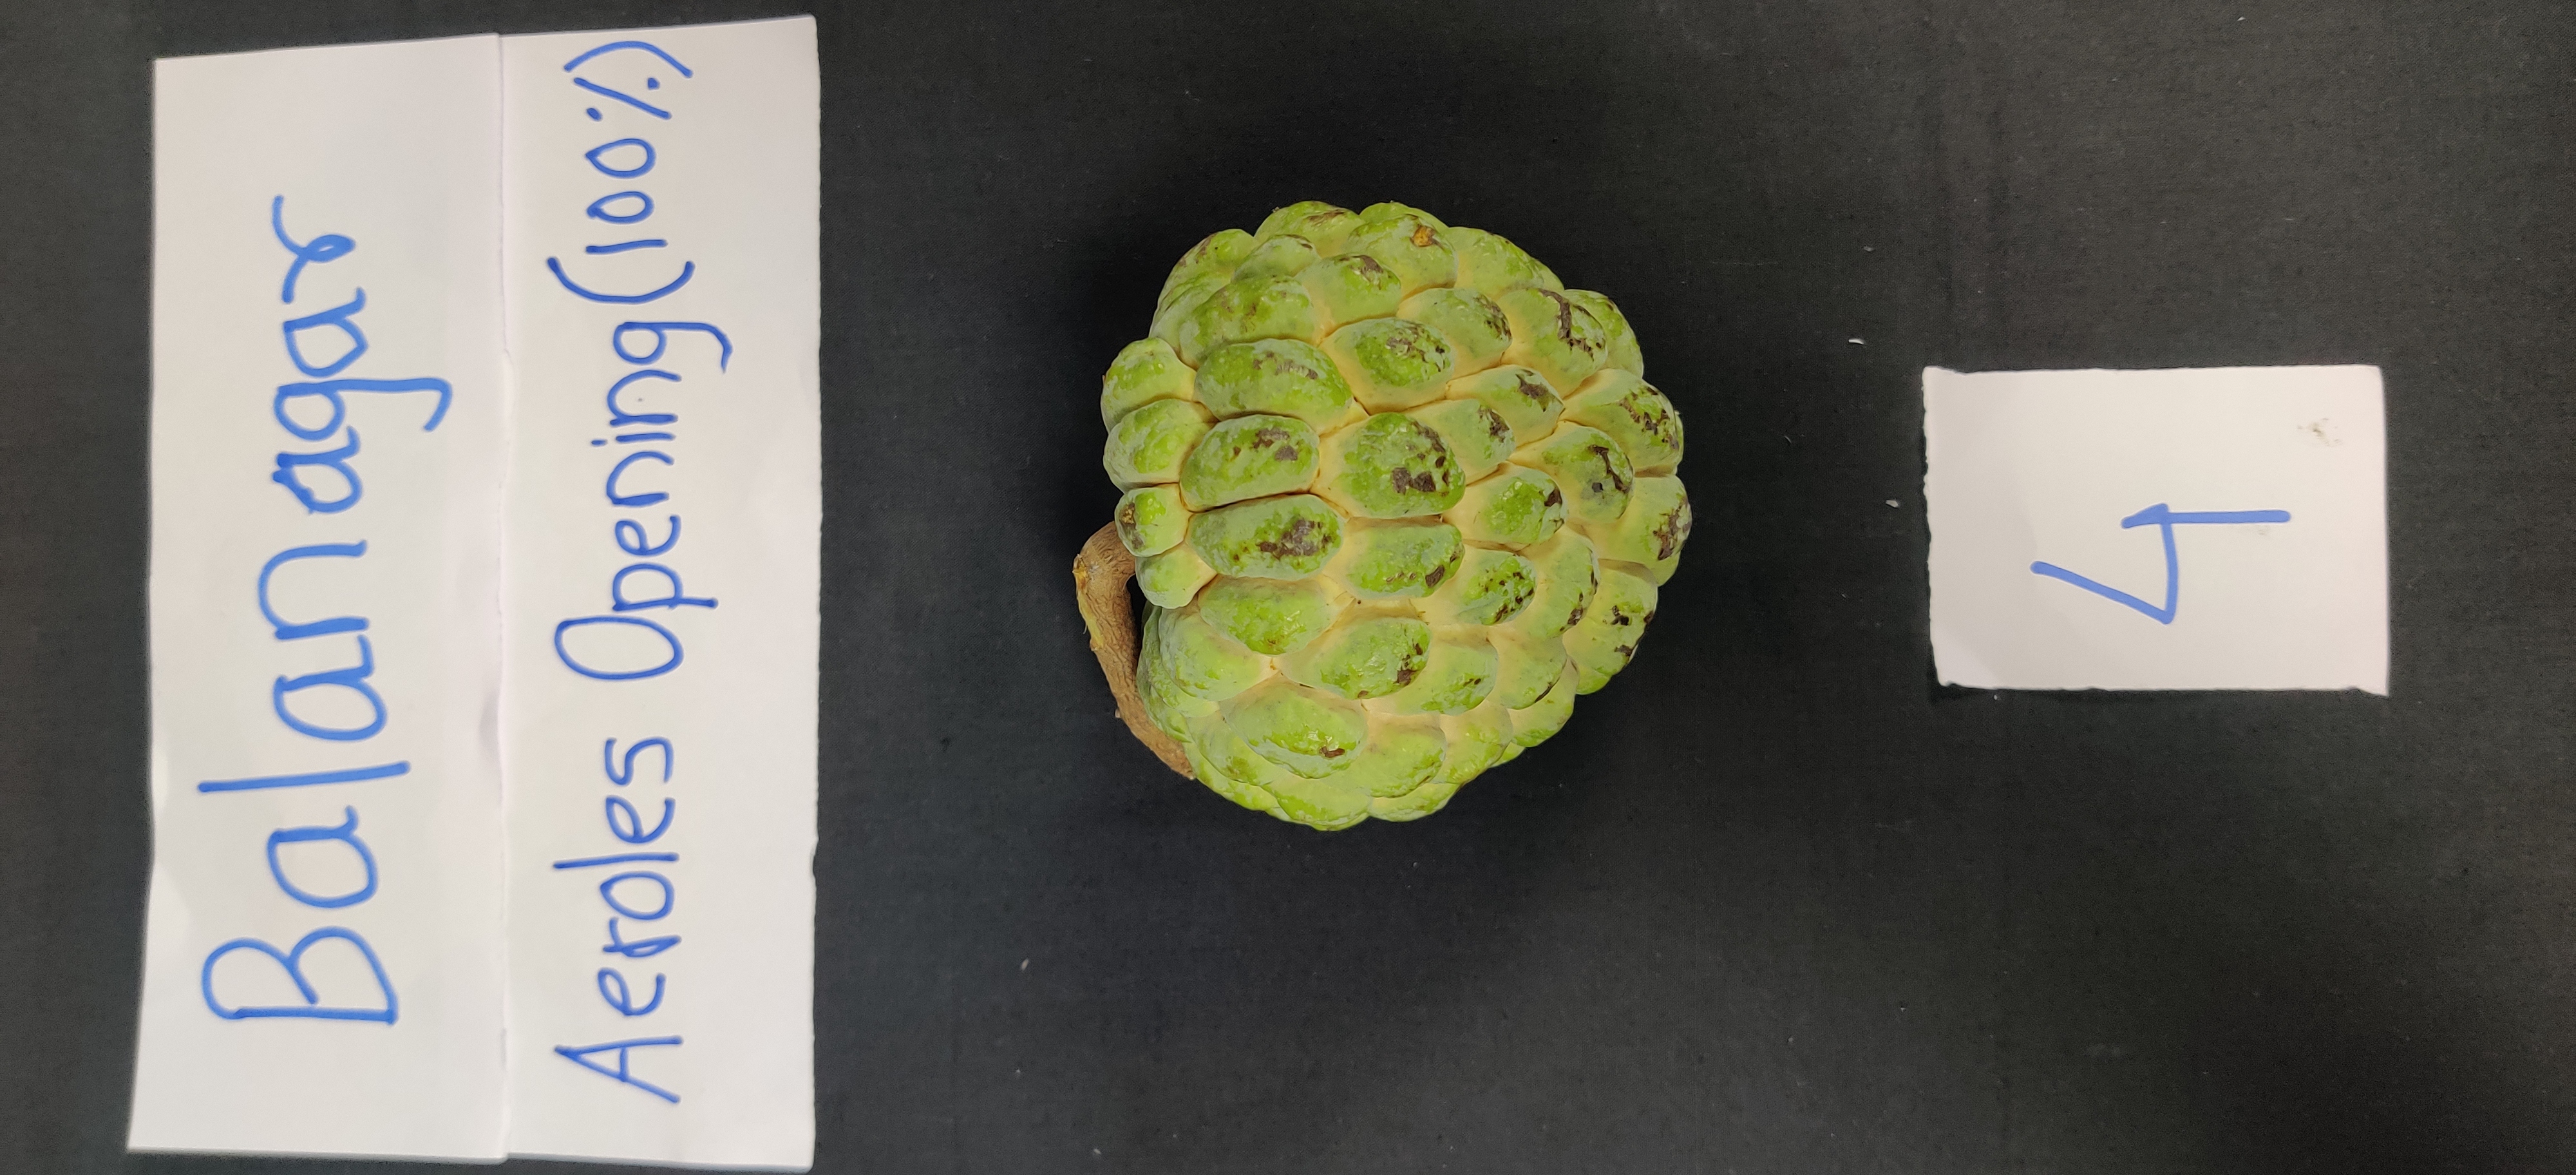 Balanagar
Aeroles Opening (100%)
4